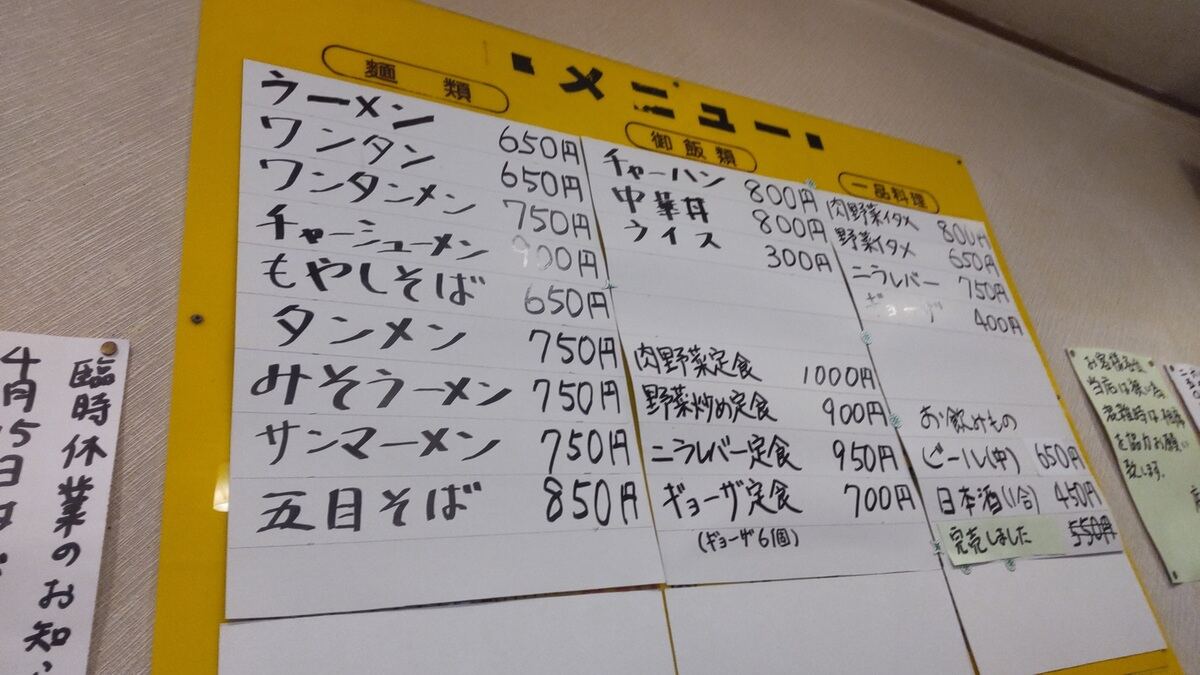 メニュー
麺類
ラーメン 650円
ワンタン 650円
ワンタンメン 750円
チャーシューメン 900円
もやしそば 650円
タンメン 750円
みそラーメン 750円
サンマーメン 750円
五目そば 850円
御飯類
チャーハン 800円
中華丼 800円
ライス 300円
肉野菜定食 1000円
野菜炒め定食 900円
ニラレバー定食 950円
ギョーザ定食 700円
(ギョーザ6個)
一品料理
肉野菜イタメ 800円
野菜イタメ 650円
ニラレバー 750円
ギョーザ 400円
お飲みもの
ビール(中) 650円
日本酒(1合) 450円
完売しました 550円
臨時休業のお知
4月
お客様各位
当店は狭い為
を協力お願い
致します。